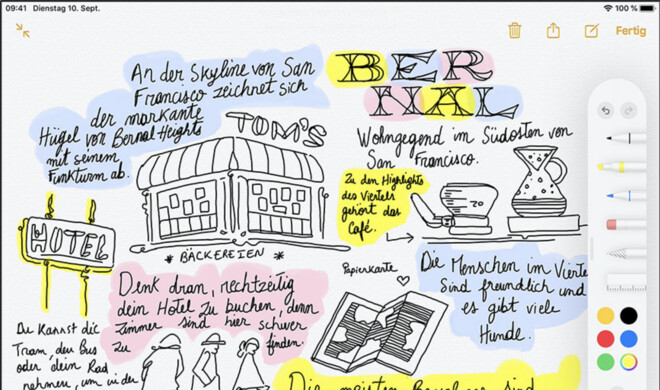 09:41 Dienstag 10. Sept.
100 %
Fertig
An der Skyline von San
Francisco zeichnet sich
der markante
Hügel von Bernal Heights
mit seinem
Funkturm ab.
BER
NAL
TOM'S
Wohngegend im Südosten von
San Francisco.
Zu den Highlights
des Viertels
gehört das
Café.
20
HOTEL
* BÄCKEREIEN *
Denk dran, rechtzeitig
dein Hotel zu buchen, denn
Zimmer sind hier schwer
zu finden.
Papierkarte
Die Menschen im Vierte
sind freundlich und
es gibt viele
Hunde.
Du kannst die
Tram, den Bus
oder dein Rad
nehmen, um in der
Die meisten
sind